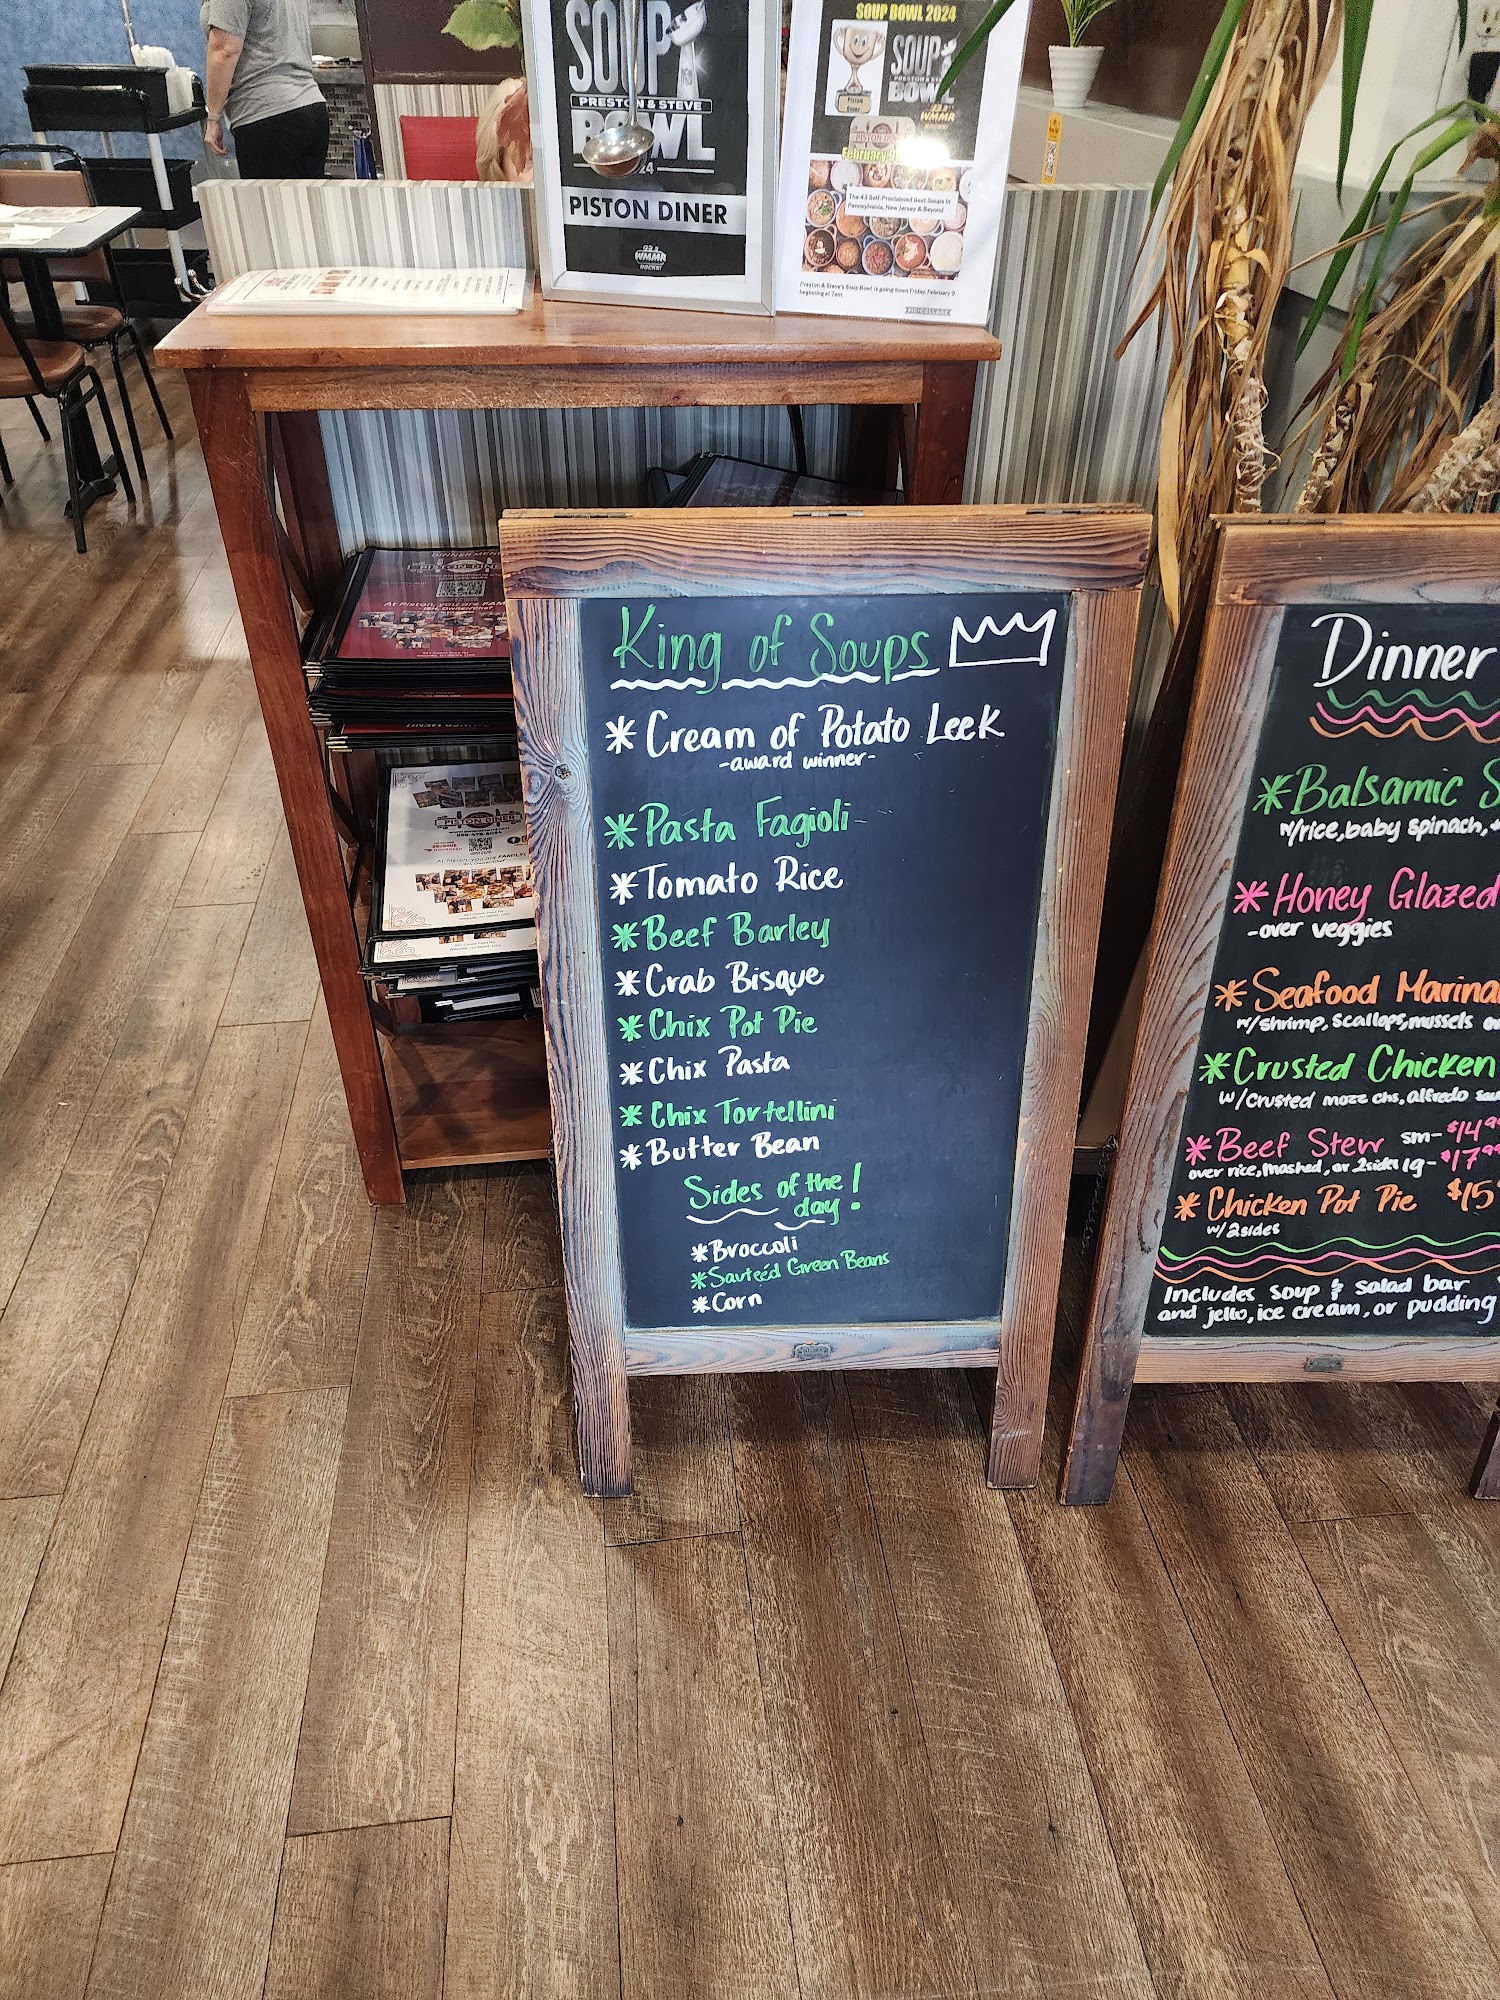 SOUP
PRESTON & STEVE
BOWL
24
PISTON DINER
WMMR
ROCKS!
SOUP BOWL 2024
SOUP
PRESTON & STE
BOWL
WMMR
Piston
Diner
PISTON DIN
February 9
The 43 Self-Proclaimed Best Soups in
Pennsylvania, New Jersey & Beyond
Preston & Steve's Soup Bowl is going down Friday, February 9
beginning at 7am.
DINNER MENU
PISTON DINE
At Piston, you are FAM
PISTON DINER
At Piston, you are FAMILY!
King of Soups
* Cream of Potato Leek
-award winner-
* Pasta Fagioli
* Tomato Rice
* Beef Barley
* Crab Bisque
* Chix Pot Pie
* Chix Pasta
* Chix Tortellini
* Butter Bean
Sides of the
day!
* Broccoli
* Sauteéd Green Beans
* Corn
Dinner
* Balsamic S
w/rice, baby spinach,
* Honey Glazed
-over veggies
* Seafood Marina
w/shrimp, scallops, mussels
* Crusted Chicken
w/crusted mozz chs, alfredo sau
* Beef Stew sm- $14.99
over rice, mashed, or 2sides lg- $17.99
* Chicken Pot Pie $15
w/2sides
Includes soup & salad bar
and jello, ice cream, or pudding